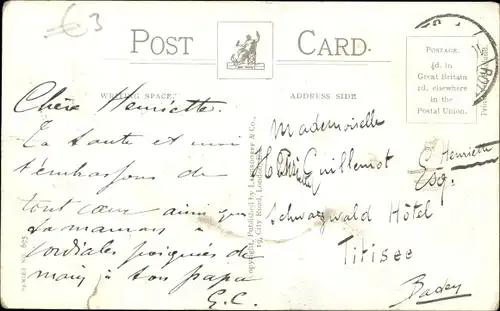 €3
POST CARD.
WRITING SPACE.
ADDRESS SIDE
POSTAGE.
½d. in
Great Britain
1d. elsewhere
in the
Postal Union.
Chère Henriette.
Ta tante et moi
t'embrassons de
tout cœur ainsi que
ta maman
cordiales poignées de
main à ton papa
G.C.
Mademoiselle
Guillemot
Henriette
Esq.
Schwarzwald Hôtel
Titisee
Baden
Copyright, Published by
& Co.,
19, City Road, London
SERIES No. 695
Printed in